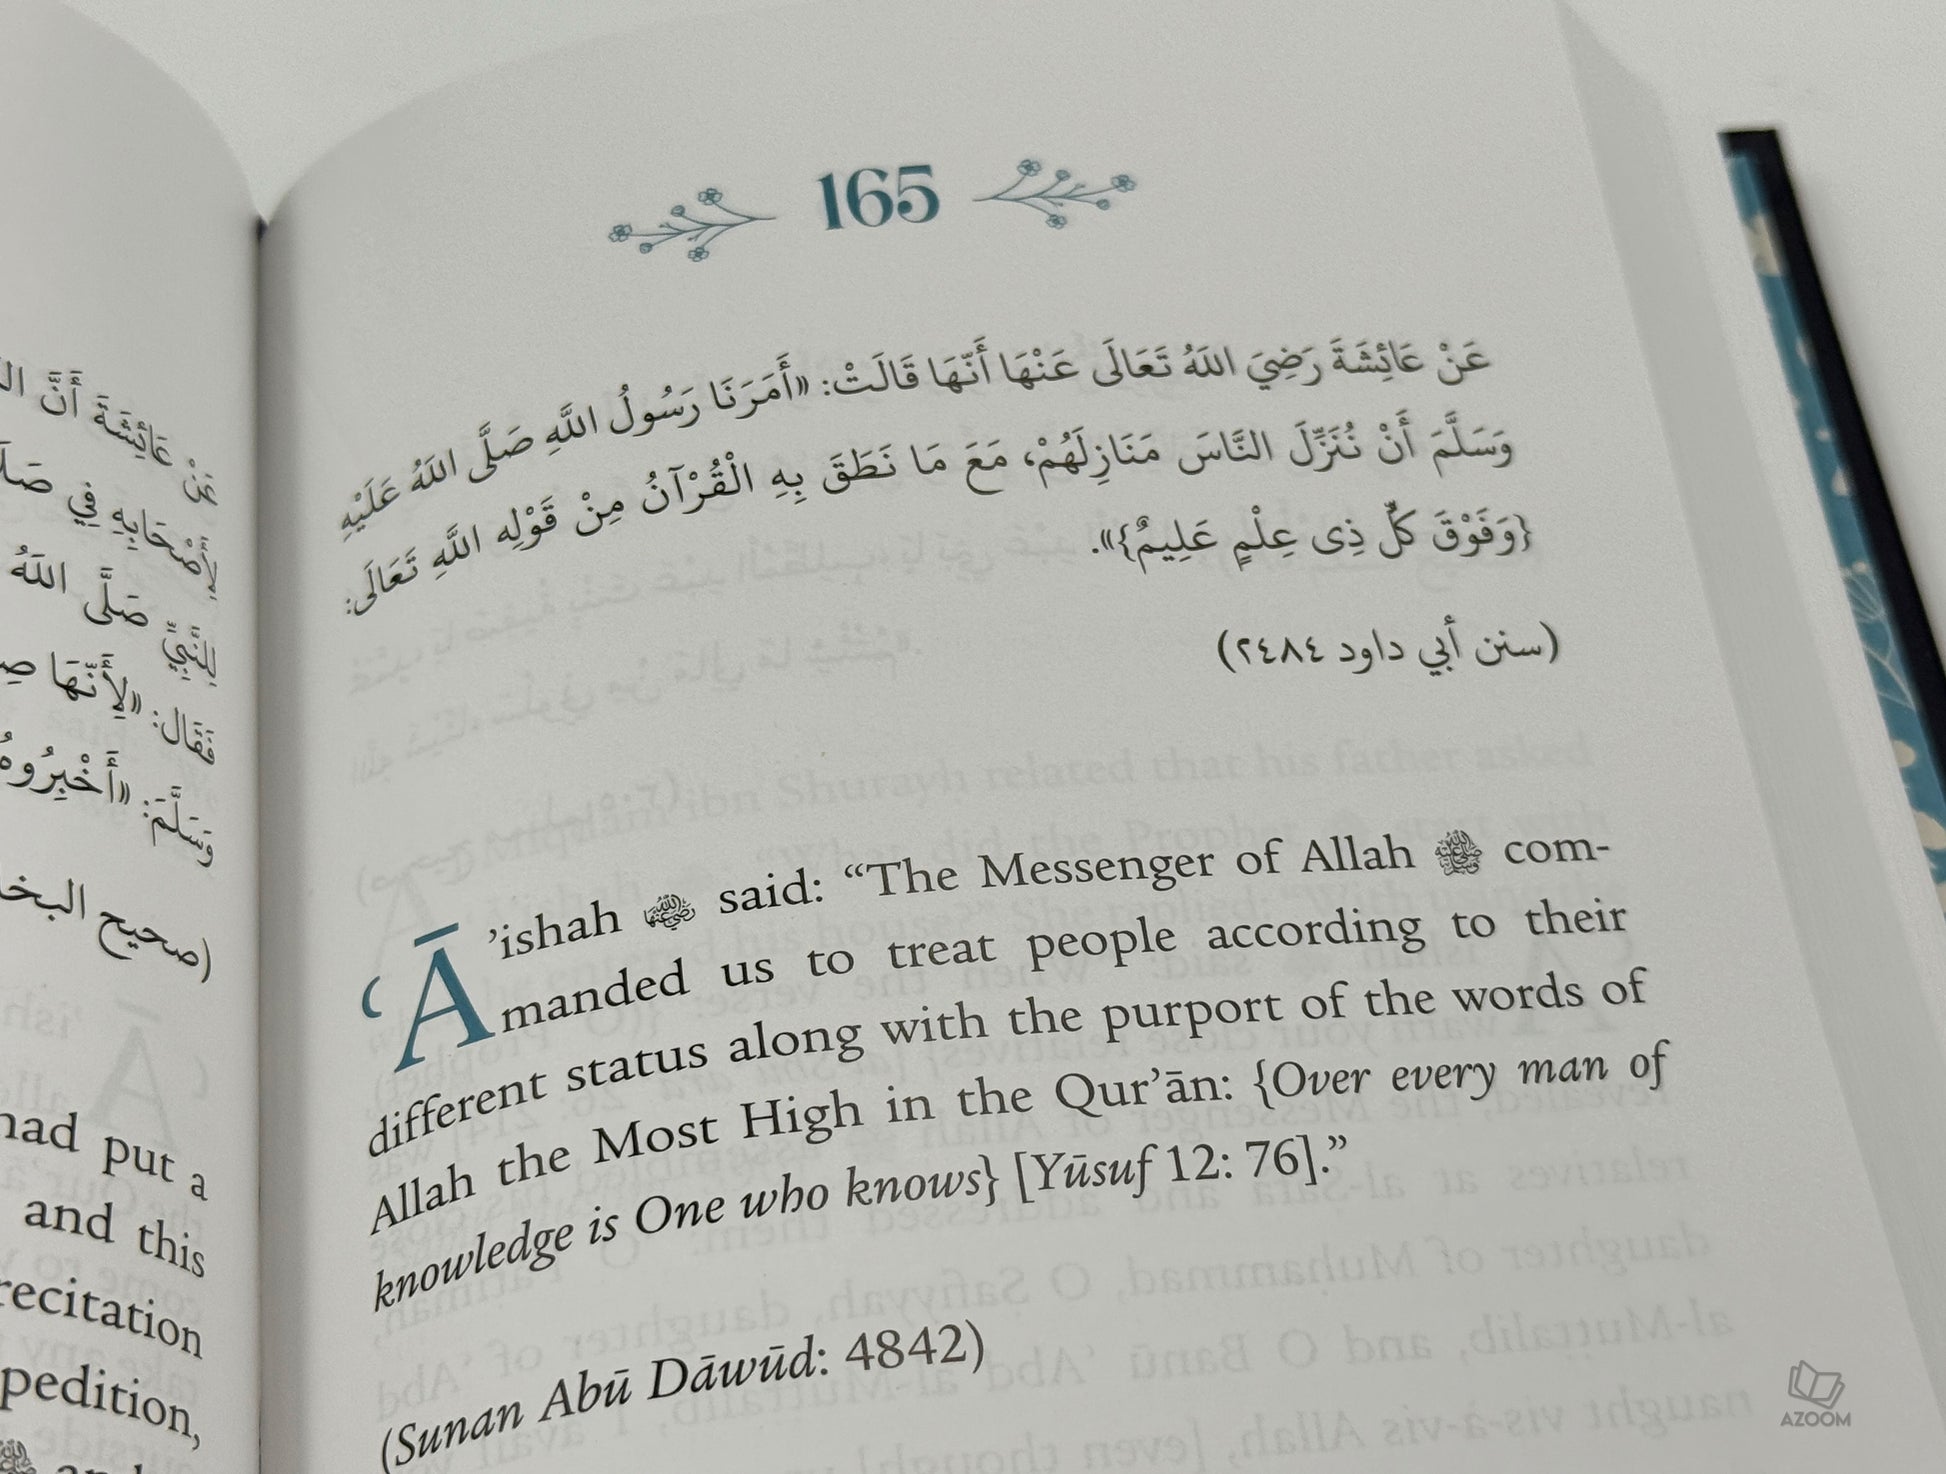 165
عَنْ عَائِشَةَ رَضِيَ اللهُ تَعَالَى عَنْهَا أَنَّهَا قَالَتْ: «أَمَرَنَا رَسُولُ اللَّهِ صَلَّى اللهُ عَلَيْهِ
وَسَلَّمَ أَنْ نُنَزِّلَ النَّاسَ مَنَازِلَهُمْ، مَعَ مَا نَطَقَ بِهِ الْقُرْآنُ مِنْ قَوْلِهِ اللَّهِ تَعَالَى:
{وَفَوْقَ كُلِّ ذِى عِلْمٍ عَلِيمٌ}».
(سنن أبي داود ٢٤٨٤)
ʿĀ’ishah ﵂ said: “The Messenger of Allah ﷺ com-
manded us to treat people according to their
different status along with the purport of the words of
Allah the Most High in the Qur’ān: {Over every man of
knowledge is One who knows} [Yūsuf 12: 76].”
(Sunan Abū Dāwūd: 4842)
عَنْ عَائِشَةَ أَنَّ
لِأَصْحَابِهِ فِي
لِلنَّبِيِّ صَلَّى اللهُ
فَقَالَ: «لِأَنَّهَا
وَسَلَّمَ: «أَخْبِرُوهُ
(صحيح
had put a
and this
recitation
pedition,
AZOOM